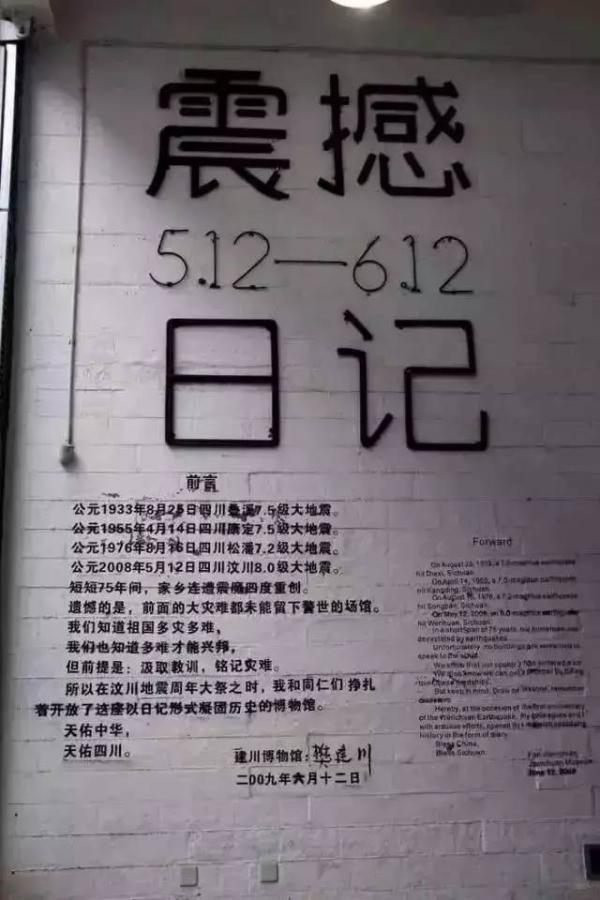 震撼
5.12—6.12
日记
前言
公元1933年8月25日四川叠溪7.5级大地震。
公元1955年4月14日四川康定7.5级大地震。
公元1976年8月16日四川松潘7.2级大地震。
公元2008年5月12日四川汶川8.0级大地震。
短短75年间，家乡连遭震魔四度重创。
遗憾的是，前面的大灾难都未能留下警世的场馆。
我们知道祖国多灾多难，
我们也知道多难才能兴邦，
但前提是：汲取教训，铭记灾难。
所以在汶川地震周年大祭之时，我和同仁们 挣扎
着开放了这座以日记形式凝固历史的博物馆。
天佑中华，
天佑四川。
建川博物馆：樊建川
二00九年六月十二日
Forward
On August 25, 1933, a 7.5-magnitude earthquake
hit Diexi, Sichuan.
On April 14, 1955, a 7.5-magnitude earthquake
hit Kangding, Sichuan.
On August 16, 1976, a 7.2-magnitude earthquake
hit Songpan, Sichuan.
On May 12, 2008, an 8.0-magnitude earthquake
hit Wenchuan, Sichuan.
In a short span of 75 years, our hometown was
devastated by earthquakes
Unfortunately, no buildings are remained to
speak to the
We also know we can only
But keep in mind: Draw on lessons, remember
Hereby, at the occasion of the first anniversary
of the Wenchuan Earthquake, my colleagues and I
with arduous efforts, opened this museum
history in the form of diary.
Bless China,
Bless Sichuan.
Fan Jianchuan
Jianchuan Museum
June 12, 2009